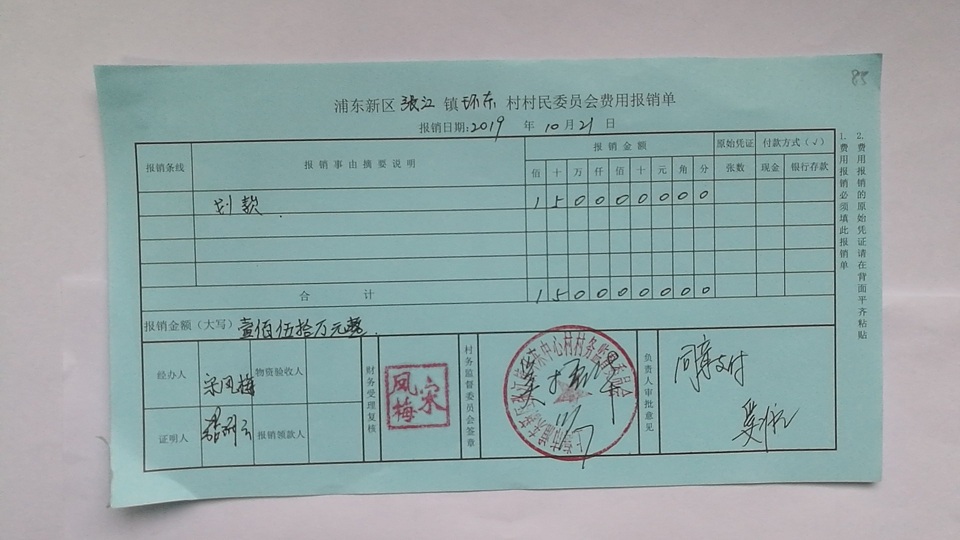 85
浦东新区张江镇环东村村民委员会费用报销单
报销日期:2019年10月21日
报销条线 报销事由摘要说明 报销金额 原始凭证 付款方式(√)
佰 十 万 仟 佰 十 元 角 分 张数 现金 银行存款
划款 1 5 0 0 0 0 0 0 0
合计 1 5 0 0 0 0 0 0 0
报销金额(大写) 壹佰伍拾万元整
经办人 宋凤梅 物资验收人
证明人 报销领款人
财务受理复核
宋凤梅
村务监督委员会签章
负责人审批意见
同意支付
1.费用报销必须填此报销单
2.费用报销的原始凭证请在背面平齐粘贴